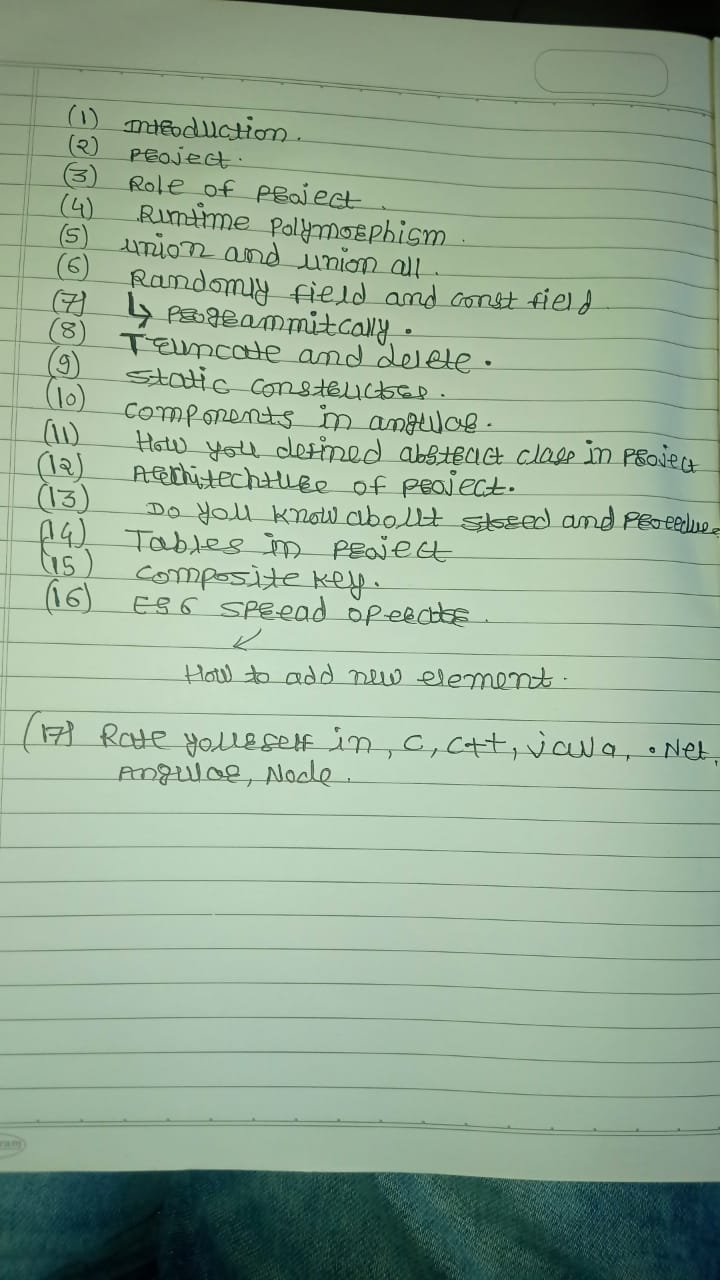 (1) Introduction.
(2) Project.
(3) Role of project.
(4) Runtime Polymorphism.
(5) union and union all.
(6) Randomly field and const field
(7) ↳ programmitcally.
(8) Truncate and delete.
(9) static constructor.
(10) components in angular.
(11) How you defined abstract class in project
(12) Architechture of project.
(13) Do you know about stored and procedure
(14) Tables in project
(15) composite key.
(16) ES6 spread operator.
↙
How to add new element.
(17) Rate yourself in, C, C++, java, .Net,
Angular, Node.